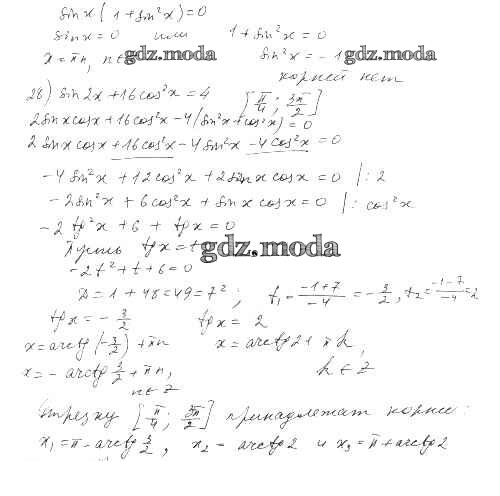 sin x (1 + sin²x) = 0
sin x = 0 или 1 + sin²x = 0
x = πn, n ∈ gdz.moda sin²x = -1 gdz.moda
корней нет
26) sin 2x + 16 cos²x = 4 [π/4; 3π/2]
2 sin x cos x + 16 cos²x - 4(sin²x + cos²x) = 0
2 sin x cos x + 16 cos²x - 4 sin²x - 4 cos²x = 0
-4 sin²x + 12 cos²x + 2 sin x cos x = 0 |: 2
-2 sin²x + 6 cos²x + sin x cos x = 0 |: cos²x
-2 tg²x + 6 + tg x = 0
Пусть tg x = t gdz.moda
-2t² + t + 6 = 0
D = 1 + 48 = 49 = 7²; t₁ = (-1+7)/-4 = -3/2, t₂ = (-1-7)/-4 = 2
tg x = -3/2 tg x = 2
x = arctg(-3/2) + πn x = arctg 2 + πk,
x = -arctg 3/2 + πn, k ∈ Z
n ∈ Z
Отрезку [π/4; 3π/2] принадлежат корни:
x₁ = π - arctg 3/2, x₂ - arctg 2 и x₃ = π + arctg 2